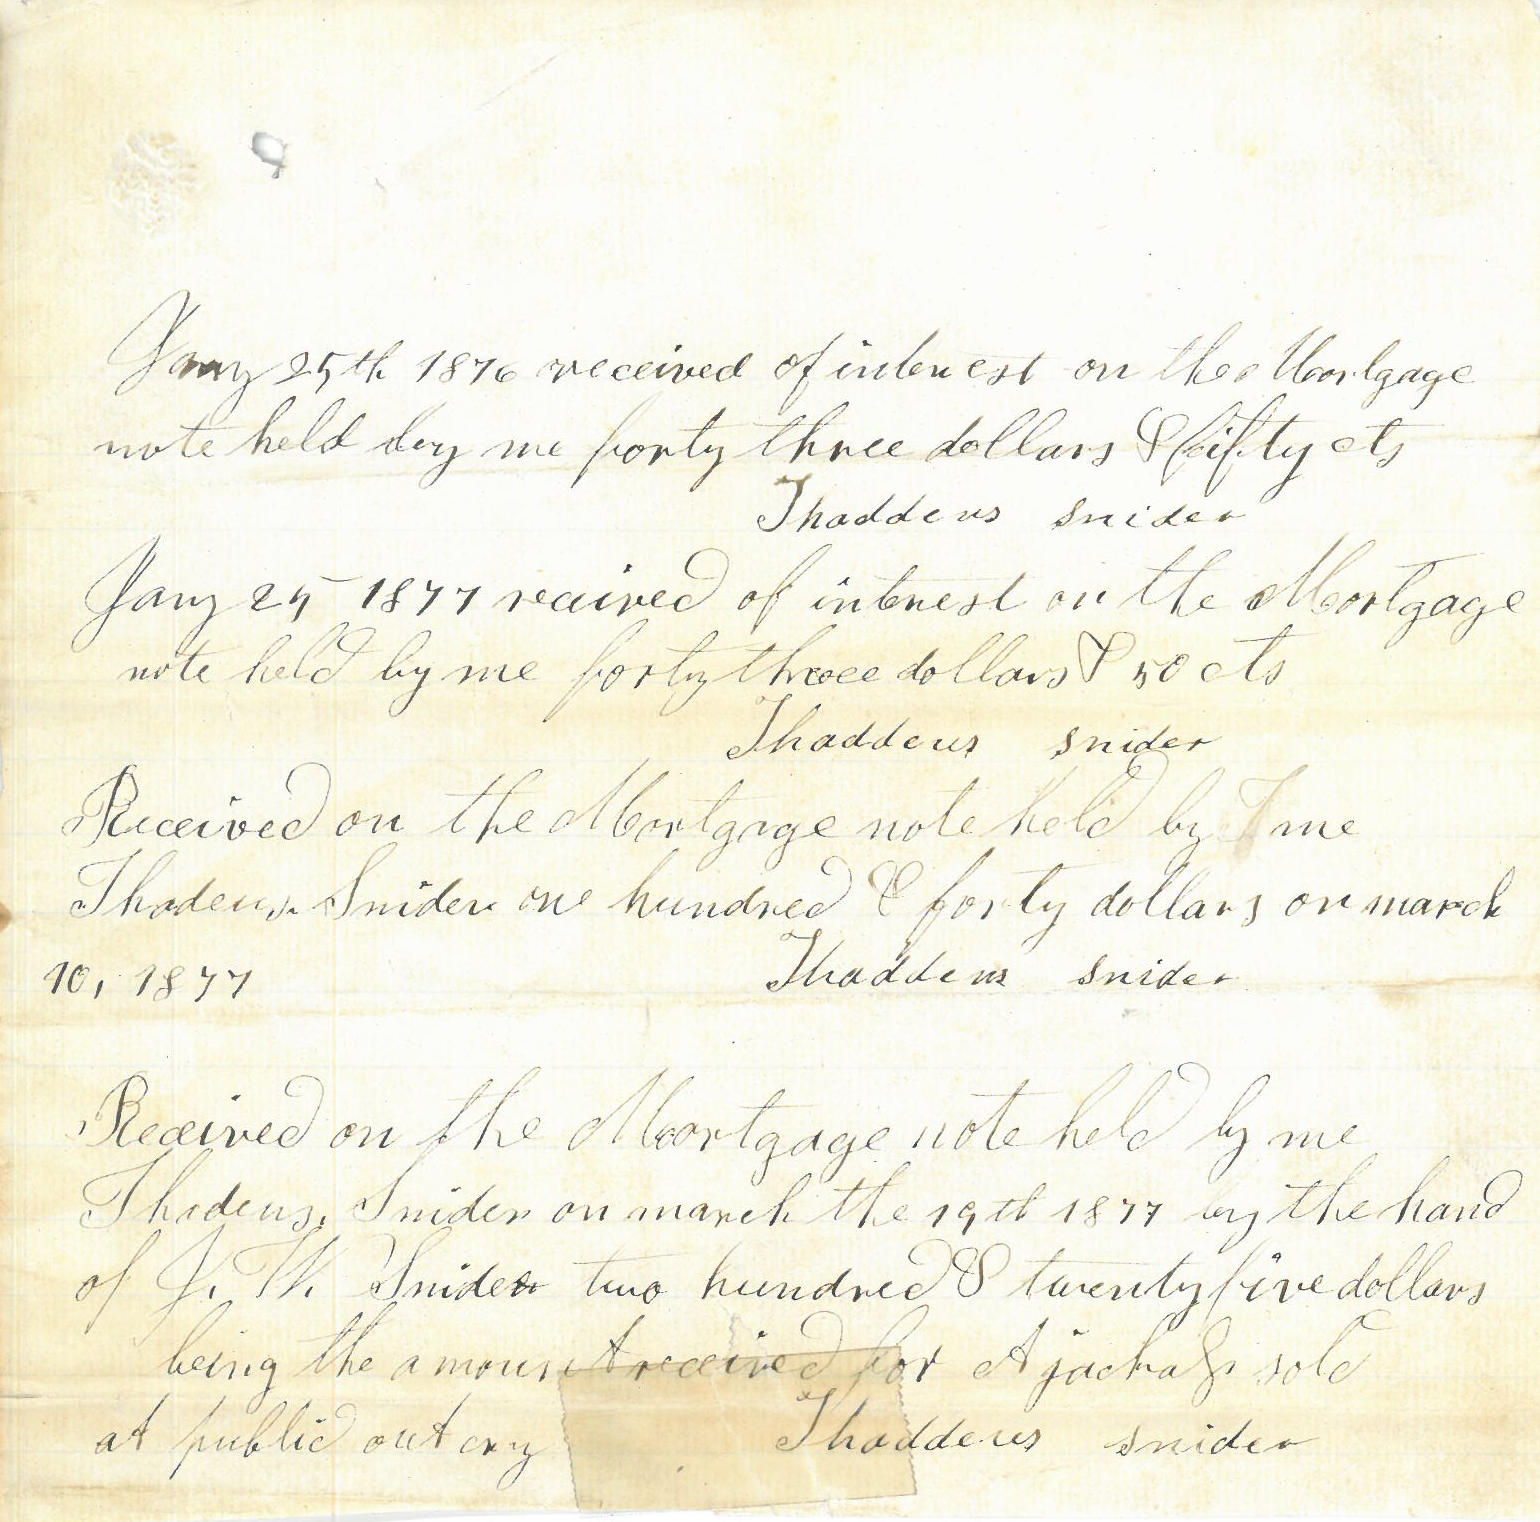 Jany 25th 1876 received of interest on the Mortgage
note held by me forty three dollars & fifty cts
Thaddeus snider
Jany 25 1877 received of interest on the Mortgage
note held by me forty three dollars & 50 cts
Thaddeus snider
Received on the Mortgage note held by me
Thadeus. Snider one hundred & forty dollars on march
10, 1877 Thaddeus snider
Received on the Mortgage note held by me
Thadeus. Snider on march the 19th 1877 by the hand
of J. W. Snider two hundred & twenty five dollars
being the amount received for A jackass sold
at public out cry Thaddeus snider